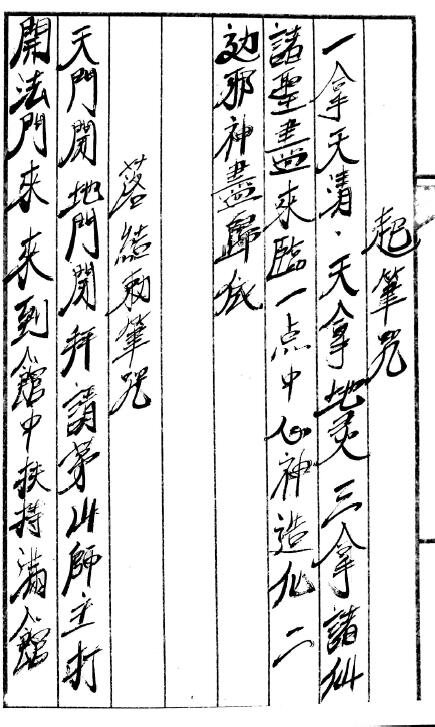 起筆咒
一拿天清、天拿地灵三拿諸仙
諸聖盡來臨一点中心神造化二
効邪神盡歸依
落結勅筆咒
天門開地門開拜請茅山師主打
開法門來來到館中扶持滿館